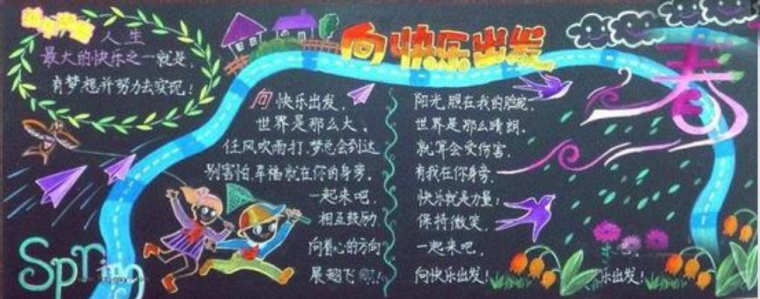 向快乐出发
人生
最大的快乐之一就是,
有梦想并努力去实现!
向快乐出发,
世界是那么大,
任风吹雨打,梦总会到达
别害怕,幸福就在你的身旁,
一起来吧,
相互鼓励
向着心的方向
展翅飞
阳光,照在我的脸庞,
世界是那么晴朗,
就算会受伤害,
有我在你身旁,
快乐就是力量!
保持微笑,
一起来吧,
向快乐出发!
乐出发!
春
Spring